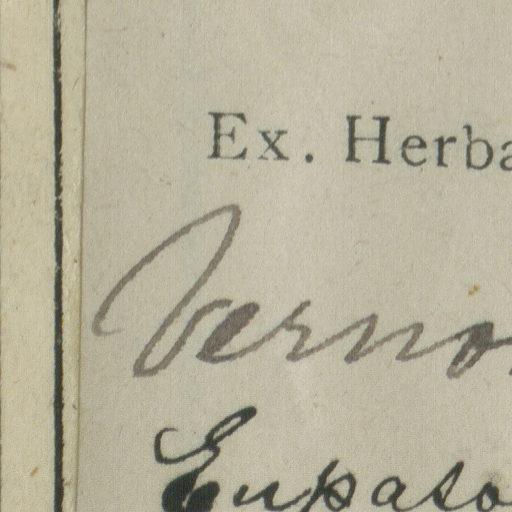 Ex. Herba
Verno
Eupato